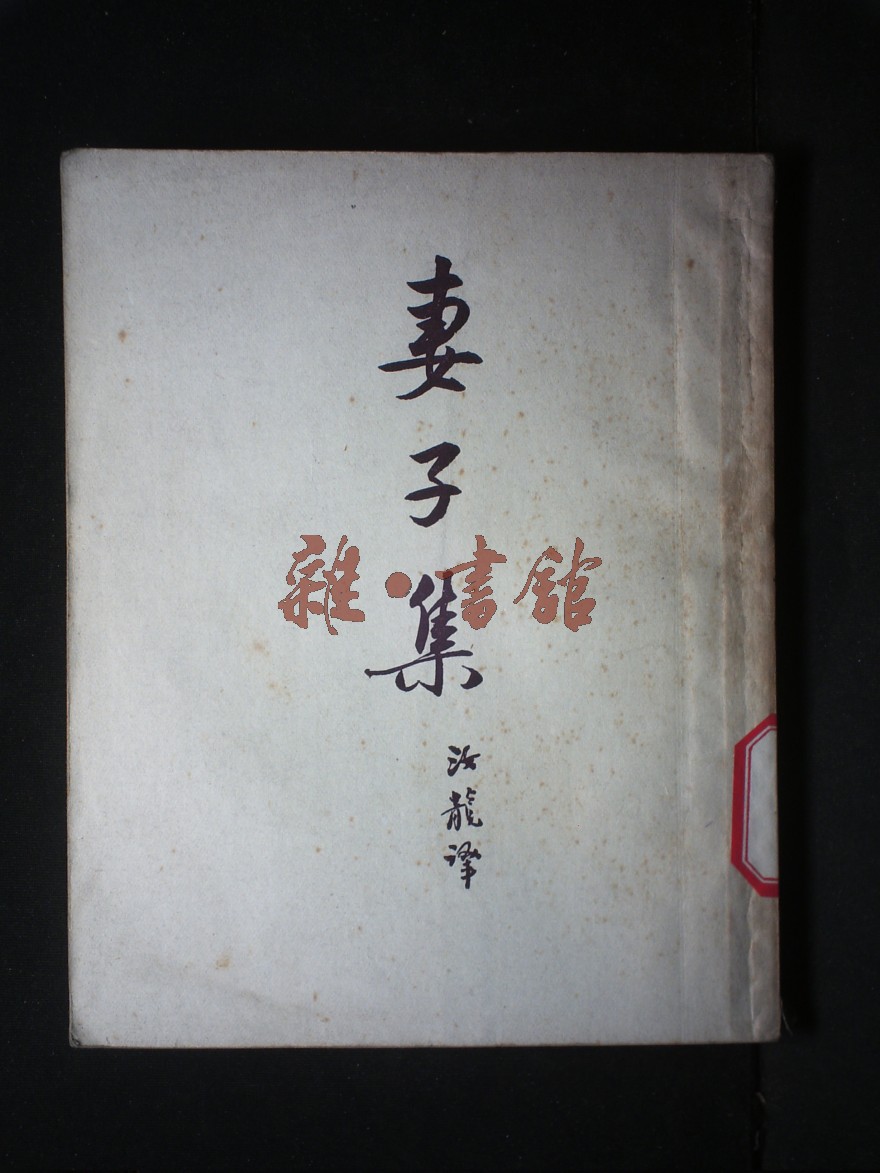 妻子集
雜·書館
汝龍譯